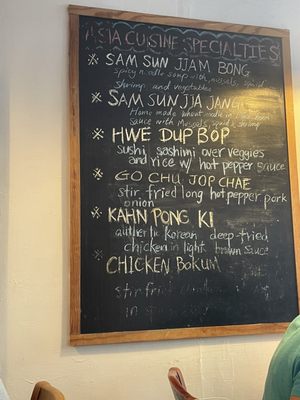 ASIA CUISINE SPECIALTIES
※ SAM SUN JJAM BONG
Spicy noodle soup with mussels, squid
shrimp and vegetables
※ SAM SUN JJA JANG
Home made wheat noodle in
sauce with mussels, squid, shrimp
※ HWE DUP BOP
sushi, sashimi over veggies
and rice w/ hot pepper sauce
※ GO CHU JOP CHAE
stir fried long hot pepper pork
onion
※ KAHN PONG KI
authentic Korean deep-fried
chicken in light brown sauce
※ CHICKEN BOKUM
stir fried
in